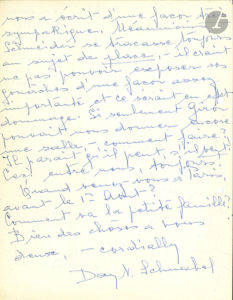 nous a écrit d'une façon très
sympathique. Meanwhile
Schneider se tracasse toujours
au sujet de place, – il craint
ne pas pouvoir exposer ses
gouaches d'une façon assez
importante et ce serait en effet
dommage. Si seulement Giron
pouvait nous donner encore
une salle, – comment faire?
Il paraît qu'il peut, s'il veut.
C'est entre nous, toujours!
Quand venez-vous à Paris,
avant le 1er Août?
Comment va la petite famille?
Bien des choses à vous
deux, – cordially
Day N. Schnabel